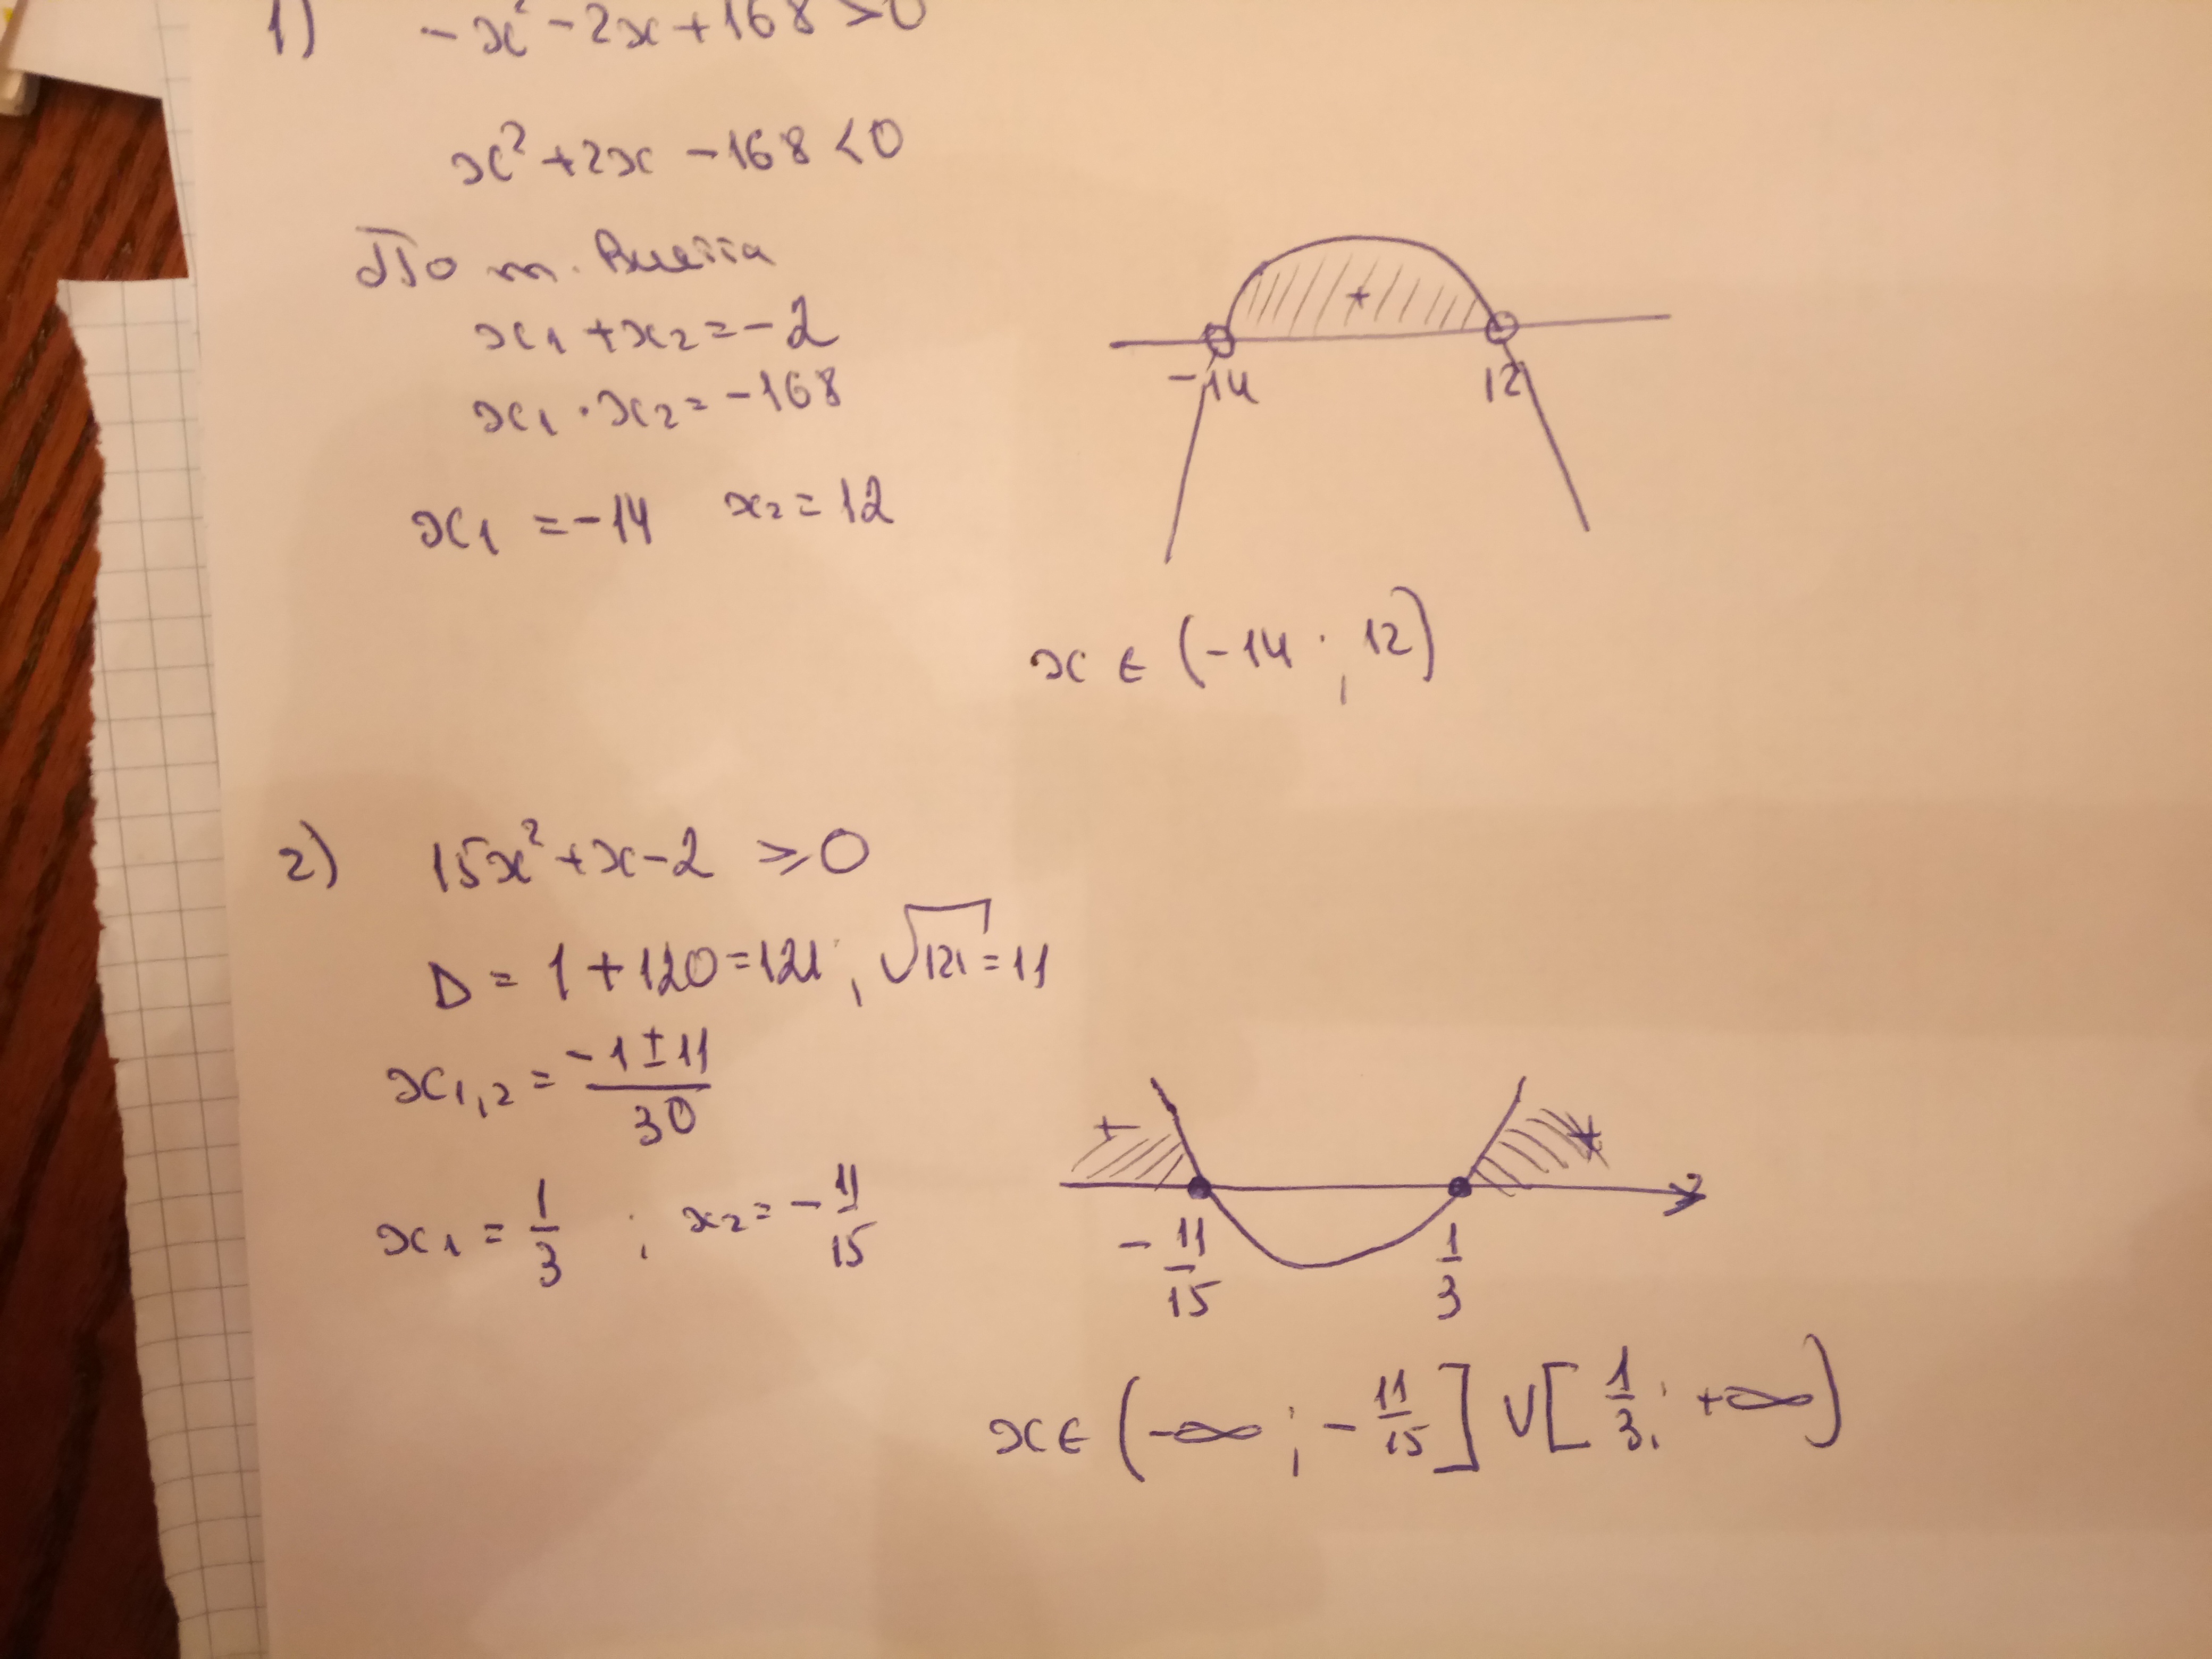 1) -x² - 2x + 168 > 0
x² + 2x - 168 < 0
По т. Виетта
x₁ + x₂ = -2
x₁ · x₂ = -168
x₁ = -14 x₂ = 12
+
-14 12
x ∈ (-14 ; 12)
2) 15x² + x - 2 ⩾ 0
D = 1 + 120 = 121 ; √121 = 11
x₁,₂ = (-1 ± 11)/30
x₁ = 1/3 ; x₂ = -11/15
+ +
-11/15 1/3
x ∈ (-∞ ; -11/15] ∪ [1/3 ; +∞)